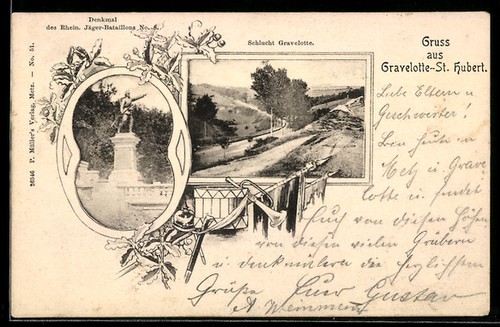 Denkmal
des Rhein. Jäger-Bataillons No. 8.
Schlucht Gravelotte.
Gruss
aus
Gravelotte-St. Hubert.
26246 P. Müller's Verlag, Metz. — No. 51.
Liebe Eltern u
Geschwister!
Ben heute in
Metz u. Grave
lotte u. sendet
Euch von diesen Höhen
von diesen vielen Gräbern
u denkmälern die herzlichsten
Grüße Euer Gustav